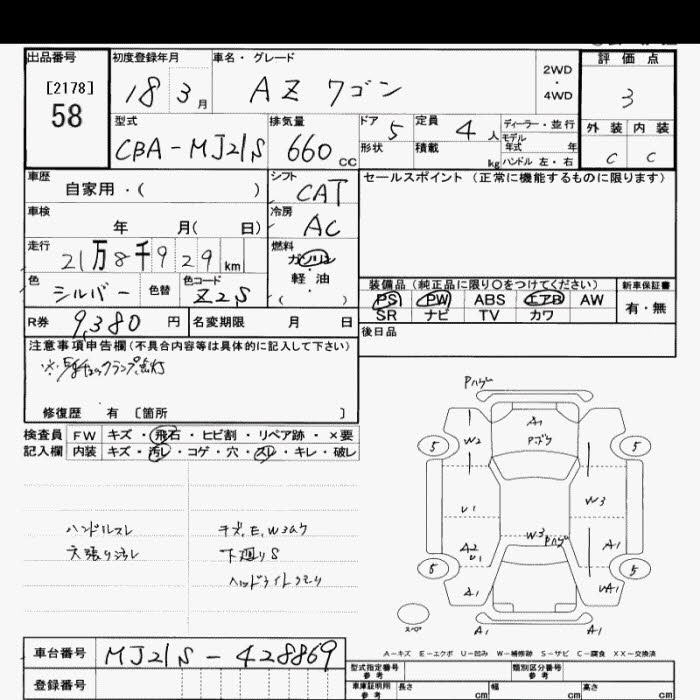 出品番号 初度登録年月 車名・グレード 評価点
[2178] 58
18 3月 AZ ワゴン 2WD・4WD 3
型式 排気量 ドア 5 定員 4人 ディーラー・並行 外装 内装
CBA-MJ21S 660cc 形状 積載 kg モデル年式 年 ハンドル 左・右 C C
車歴 自家用・( ) シフト CAT セールスポイント (正常に機能するものに限ります)
車検 年 月( 日) 冷房 AC
走行 21万8千929km 燃料 ガソリン
軽・油
( )
色 シルバー 色替 色コード Z2S
装備品(純正品に限り○をつけてください) 新車保証書
PS PW ABS エアB AW 有・無
SR ナビ TV カワ
R券 9,380円 名変期限 月 日 後日品
注意事項申告欄(不具合内容等は具体的に記入して下さい)
修復歴 有 [箇所 ]
検査員 FW キズ・飛石・ヒビ割・リペア跡・×要
記入欄 内装 キズ・汚レ・コゲ・穴・スレ・キレ・破レ
ハンドルスレ
天張り汚レ
キズ,E,W3ムラ
下廻りS
ヘッドライトクモリ
Pハゲ
A1
Pブク
5 W2 5
U1 W3
W3 Pハゲ
A2 U1 A1
5 5
A1 UA1
スペア A1 A1
A-キズ E-エクボ U-凹み W-補修跡 S-サビ C-腐食 XX-交換済
車台番号 MJ21S-428869
登録番号
型式指定番号 参考 類別区分番号 参考
車庫証明用 参考 長さ cm 幅 cm 高さ cm